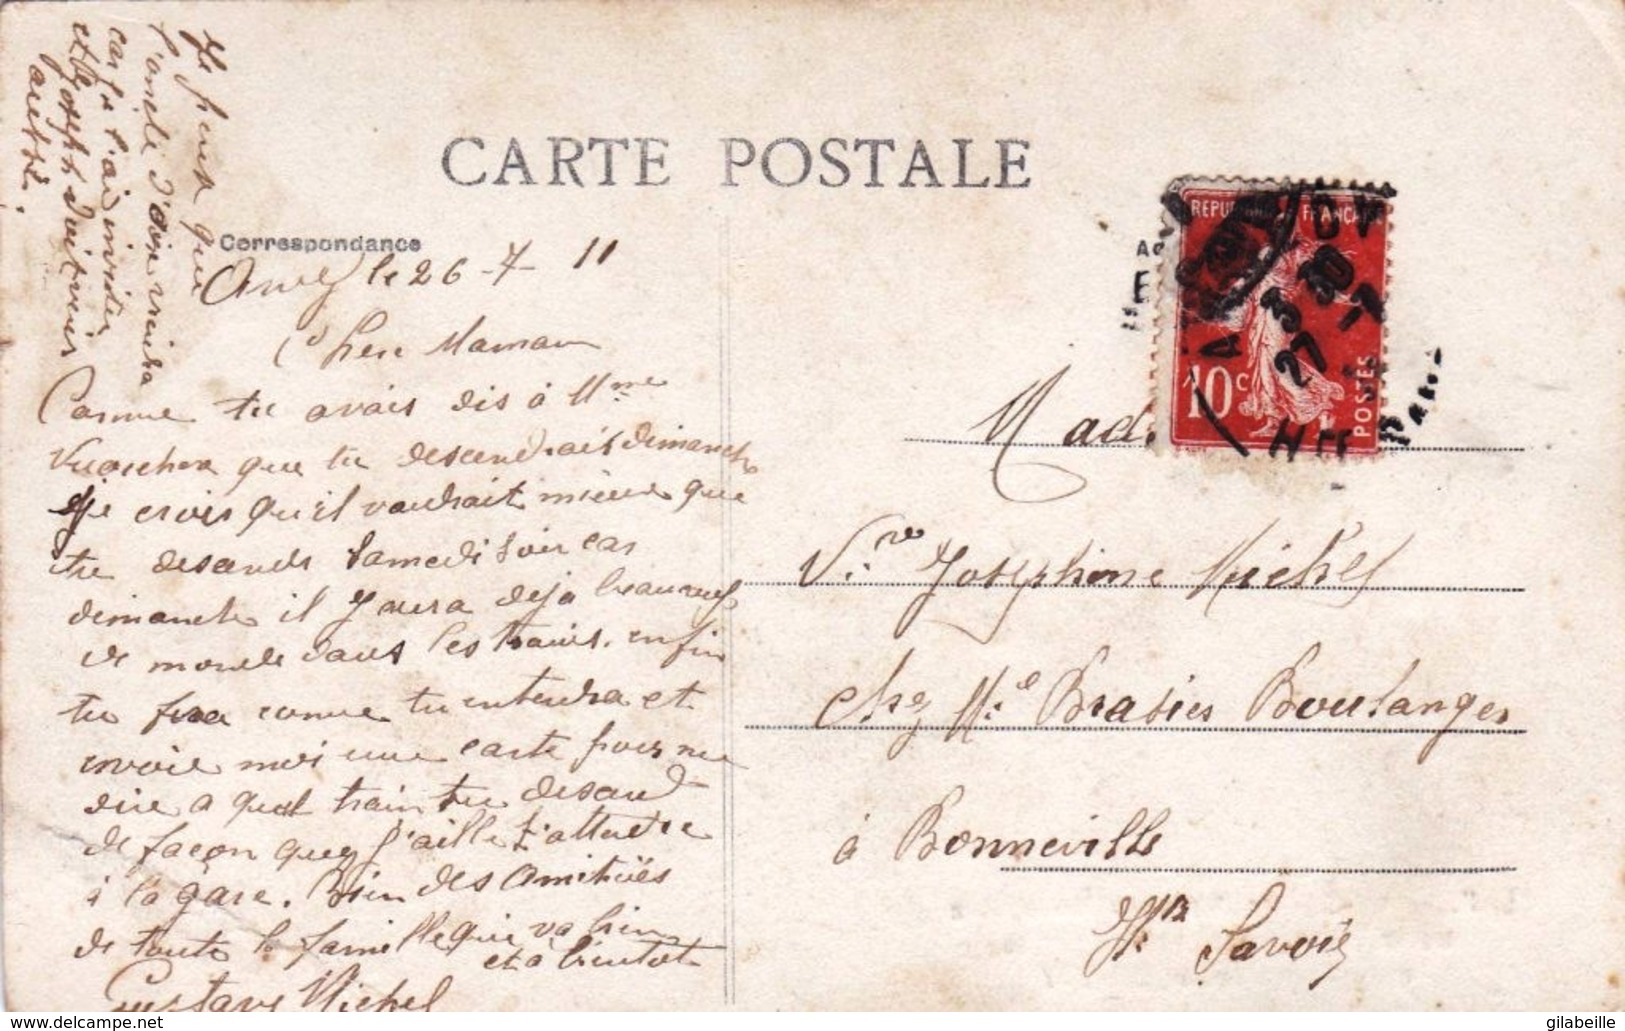 CARTE POSTALE
Correspondance
le 26-7-11
Chere Maman
Comme tu avais dis à Mme
que tu descendrais dimanche
je crois qu'il vaudrait mieux que
tu desande Samedi soir car
dimanche il y aura deja beaucoup
de monde dans les trains. enfin
tu fera comme tu entendra et
envoie moi une carte pour me
dire a quel train tu desand
de façon que j'aille t'attendre
à la gare. Bien des amitiés
de toute la famille qui va bien
et à bientot
Gustave Michel
Je pense que
l'oncle d'Aoïse viendra
car je l'ai inviter
et le Joseph doit venir
aussi.
REPUBLIQUE FRANÇAISE
10c
POSTES
3 30
27 -7
Mad
Vve Josephine Michel
chez Mr Brasier Boulanger
à Bonneville
Hte Savoie
delcampe.net
gilabeille